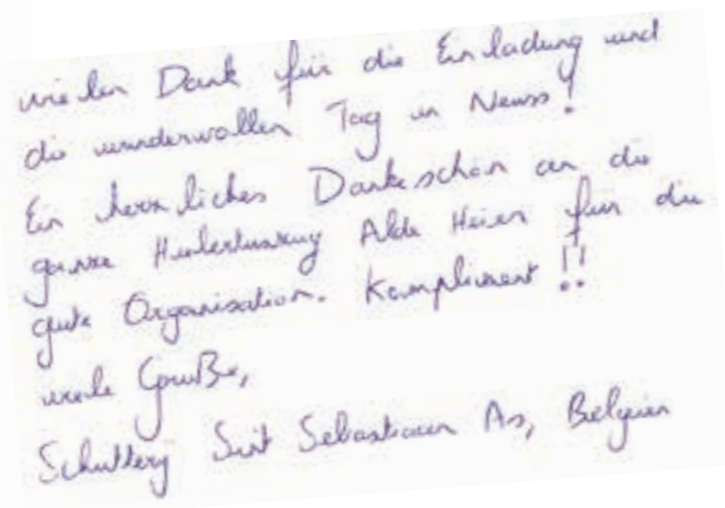 vielen Dank für die Einladung und
die wundervollen Tag in Neuss!
Ein herzliches Dankeschön an die
ganze Hubertuszug Alde Heien für die
gute Organisation. Kompliment!!
viele Grüße,
Schutterij Sint Sebastiaan As, Belgien